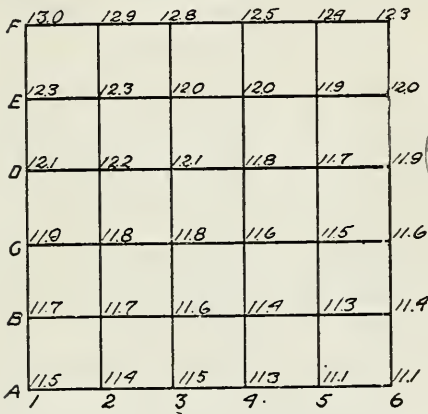 F 13.0 12.9 12.8 12.5 12.4 12.3
E 12.3 12.3 12.0 12.0 11.9 12.0
D 12.1 12.2 12.1 11.8 11.7 11.9
C 11.9 11.8 11.8 11.6 11.5 11.6
B 11.7 11.7 11.6 11.4 11.3 11.4
A 11.5 11.4 11.5 11.3 11.1 11.1
1 2 3 4. 5 6